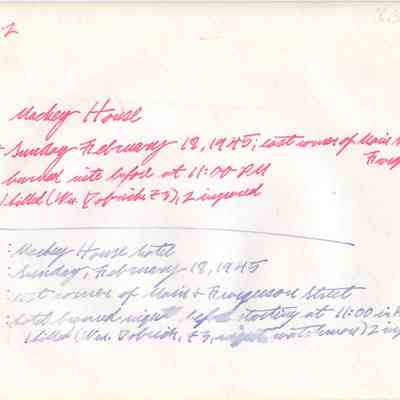 -2
Mackey House
Sunday February 18, 1945; east corner of Main
burned nite before at 11:00 PM
1 killed (Wm. 73), 2 injured
: Mackey House hotel
: Sunday, February 18, 1945
: east corner of Main + Street
: hotel burned night before starting at 11:00 in
1 killed (Wm. 73, night watchman) 2